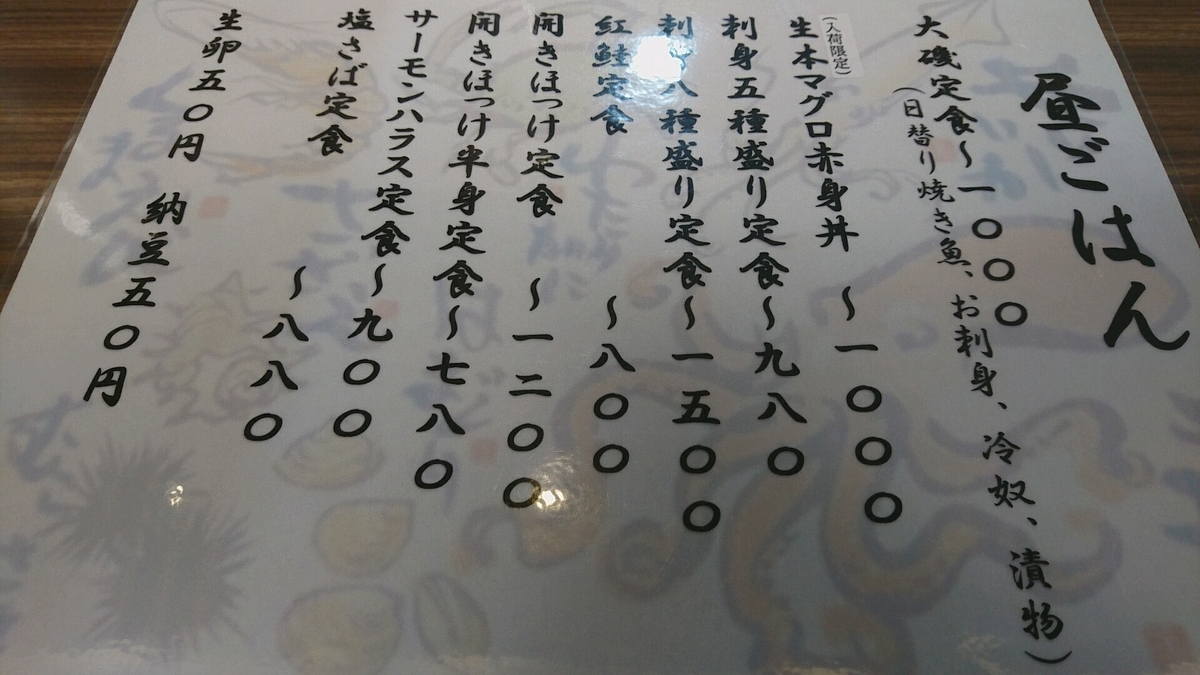 昼ごはん
大磯定食〜一〇〇〇
(日替り焼き魚、お刺身、冷奴、漬物)
(入荷限定)
生本マグロ赤身丼 〜一〇〇〇
刺身五種盛り定食〜九八〇
刺身八種盛り定食〜一五〇〇
紅鮭定食 〜八〇〇
開きほっけ定食 〜一二〇〇
開きほっけ半身定食〜七八〇
サーモンハラス定食〜九〇〇
塩さば定食 〜八八〇
生卵五〇円 納豆五〇円